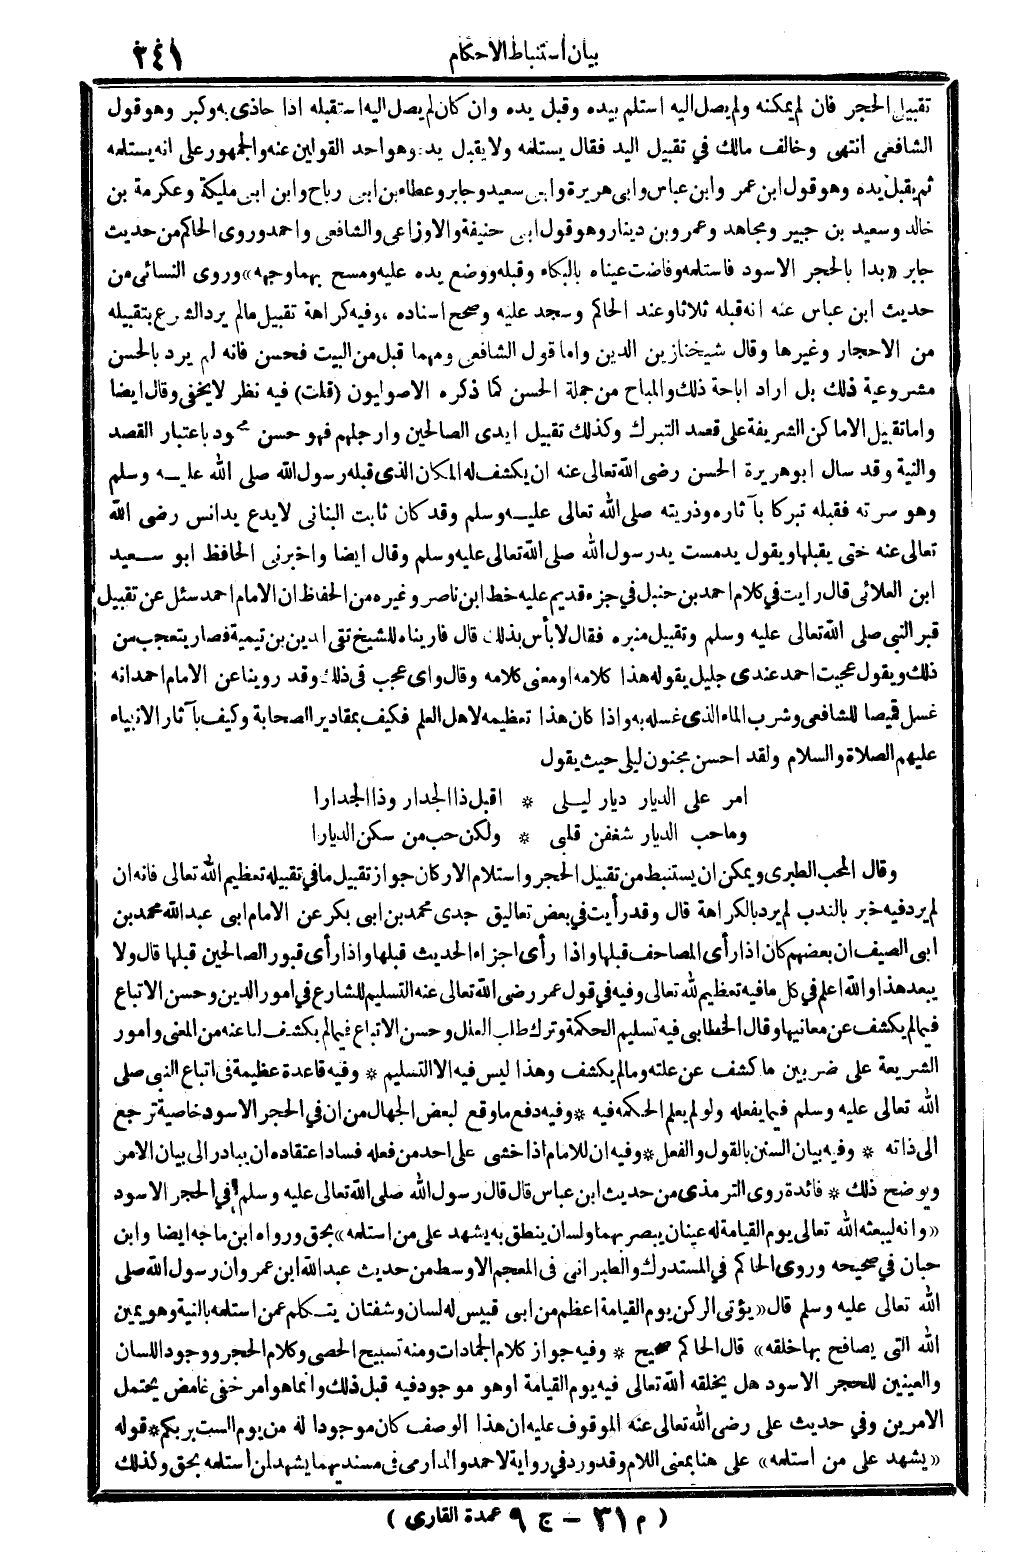 بيان أستنباط الاحكام
٢٤١
تقبيل الحجر فان لم يمكنه ولم يصل اليه استلم بيده وقبل يده وان كان لم يصل اليه استقبله اذا حاذى به وكبر وهو قول
الشافعي انتهى وخالف مالك في تقبيل اليد فقال يستلمه ولا يقبل يده وهو احد القولين عنه والجمهور على انه يستلمه
ثم يقبل يده وهو قول ابن عمر وابن عباس وابي هريرة وابي سعيد وجابر وعطاء بن ابي رباح وابن ابي مليكة وعكرمة بن
خالد وسعيد بن جبير ومجاهد وعمرو بن دينار وهو قول ابي حنيفة والاوزاعى والشافعى واحمد وروى الحاكم من حديث
جابر «بدا بالحجر الاسود فاستلمه وفاضت عيناه بالبكاء وقبله ووضع يده عليه ومسح بهما وجهه» وروى النسائى من
حديث ابن عباس عنه انه قبله ثلاثا وعند الحاكم وسجد عليه وصحح اسناده ، وفيه كراهة تقبيل مالم يرد الشرع بتقبيله
من الاحجار وغيرها وقال شيخنا زين الدين واما قول الشافعى ومهما قبل من البيت فحسن فانه لم يرد بالحسن
مشروعية ذلك بل اراد اباحة ذلك والمباح من جملة الحسن كما ذكره الاصوليون (قلت) فيه نظر لا يخفى وقال ايضا
واما تقبيل الاماكن الشريفة على قصد التبرك وكذلك تقبيل ايدى الصالحين وارجلهم فهو حسن محمود باعتبار القصد
والنية وقد سال ابو هريرة الحسن رضى الله تعالى عنه ان يكشف له المكان الذى قبله رسول الله صلى الله عليه وسلم
وهو سرته فقبله تبركا بآثاره وذريته صلى الله تعالى عليه وسلم وقد كان ثابت البنانى لا يدع يد انس رضى الله
تعالى عنه حتى يقبلها ويقول يد مست يد رسول الله صلى الله تعالى عليه وسلم وقال ايضا واخبرنى الحافظ ابو سعيد
ابن العلائى قال رايت في كلام احمد بن حنبل في جزء قديم عليه خط ابن ناصر وغيره من الحفاظ ان الامام احمد سئل عن تقبيل
قبر النبى صلى الله تعالى عليه وسلم وتقبيل منبره فقال لا بأس بذلك قال فاريناه للشيخ تقى الدين بن تيمية فصار يتعجب من
ذلك ويقول عجبت احمد عندى جليل يقوله هذا كلامه او معنى كلامه وقال واى عجب فى ذلك وقد روينا عن الامام احمد انه
غسل قميصا للشافعى وشرب الماء الذى غسله به واذا كان هذا تعظيمه لاهل العلم فكيف بمقادير الصحابة وكيف بآثار الانبياء
عليهم الصلاة والسلام ولقد احسن مجنون ليلى حيث يقول
امر على الديار ديار ليلى * اقبل ذا الجدار وذا الجدارا
وما حب الديار شغفن قلبى * ولكن حب من سكن الديارا
وقال المحب الطبرى ويمكن ان يستنبط من تقبيل الحجر واستلام الاركان جواز تقبيل ما في تقبيله تعظيم الله تعالى فانه ان
لم يرد فيه خبر بالندب لم يرد بالكراهة قال وقد رأيت في بعض تعاليق جدى محمد بن ابى بكر عن الامام ابى عبد الله محمد بن
ابى الصيف ان بعضهم كان اذا رأى المصاحف قبلها واذا رأى اجزاء الحديث قبلها واذا رأى قبور الصالحين قبلها قال ولا
يبعد هذا والله اعلم في كل ما فيه تعظيم لله تعالى وفيه في قول عمر رضى الله تعالى عنه التسليم للشارع في امور الدين وحسن الاتباع
فيما لم يكشف عن معانيها وقال الخطابى فيه تسليم الحكمة وترك طلب العلل وحسن الاتباع فيما لم يكشف لنا عنه من المعنى وامور
الشريعة على ضربين ما كشف عن علته وما لم يكشف وهذا ليس فيه الا التسليم * وفيه قاعدة عظيمة فى اتباع النبى صلى
الله تعالى عليه وسلم فيما يفعله ولو لم يعلم الحكمة فيه * وفيه دفع ما وقع لبعض الجهال من ان في الحجر الاسود خاصية ترجع
الى ذاته * وفيه بيان السنن بالقول والفعل * وفيه ان للامام اذا خشى على احد من فعله فساد اعتقاده ان يبادر الى بيان الامر
ويوضح ذلك * فائدة روى الترمذى من حديث ابن عباس قال قال رسول الله صلى الله تعالى عليه وسلم في الحجر الاسود
«وانه ليبعثه الله تعالى يوم القيامة له عينان يبصر بهما ولسان ينطق به يشهد على من استلمه» بحق ورواه ابن ماجه ايضا وابن
حبان في صحيحه وروى الحاكم في المستدرك والطبرانى فى المعجم الاوسط من حديث عبد الله ابن عمر وان رسول الله صلى
الله تعالى عليه وسلم قال «يؤتى الركن يوم القيامة اعظم من ابى قبيس له لسان وشفتان يتكلم عمن استلمه بالنية وهو يمين
الله التى يصافح بها خلقه» قال الحاكم صحيح * وفيه جواز كلام الجمادات ومنه تسبيح الحصى وكلام الحجر ووجود اللسان
والعينين للحجر الاسود هل يخلقه الله تعالى فيه يوم القيامة او هو موجود فيه قبل ذلك وانما هو امر خفى غامض يحتمل
الامرين وفي حديث على رضى الله تعالى عنه الموقوف عليه ان هذا الوصف كان موجودا له من يوم الست بربكم * قوله
«يشهد على من استلمه» على هنا بمعنى اللام وقد ورد في رواية لاحمد والدارمى فى مسنديهما يشهد لمن أستلمه بحق وكذلك
( م ٣١ - ج ٩ عمدة القارى )